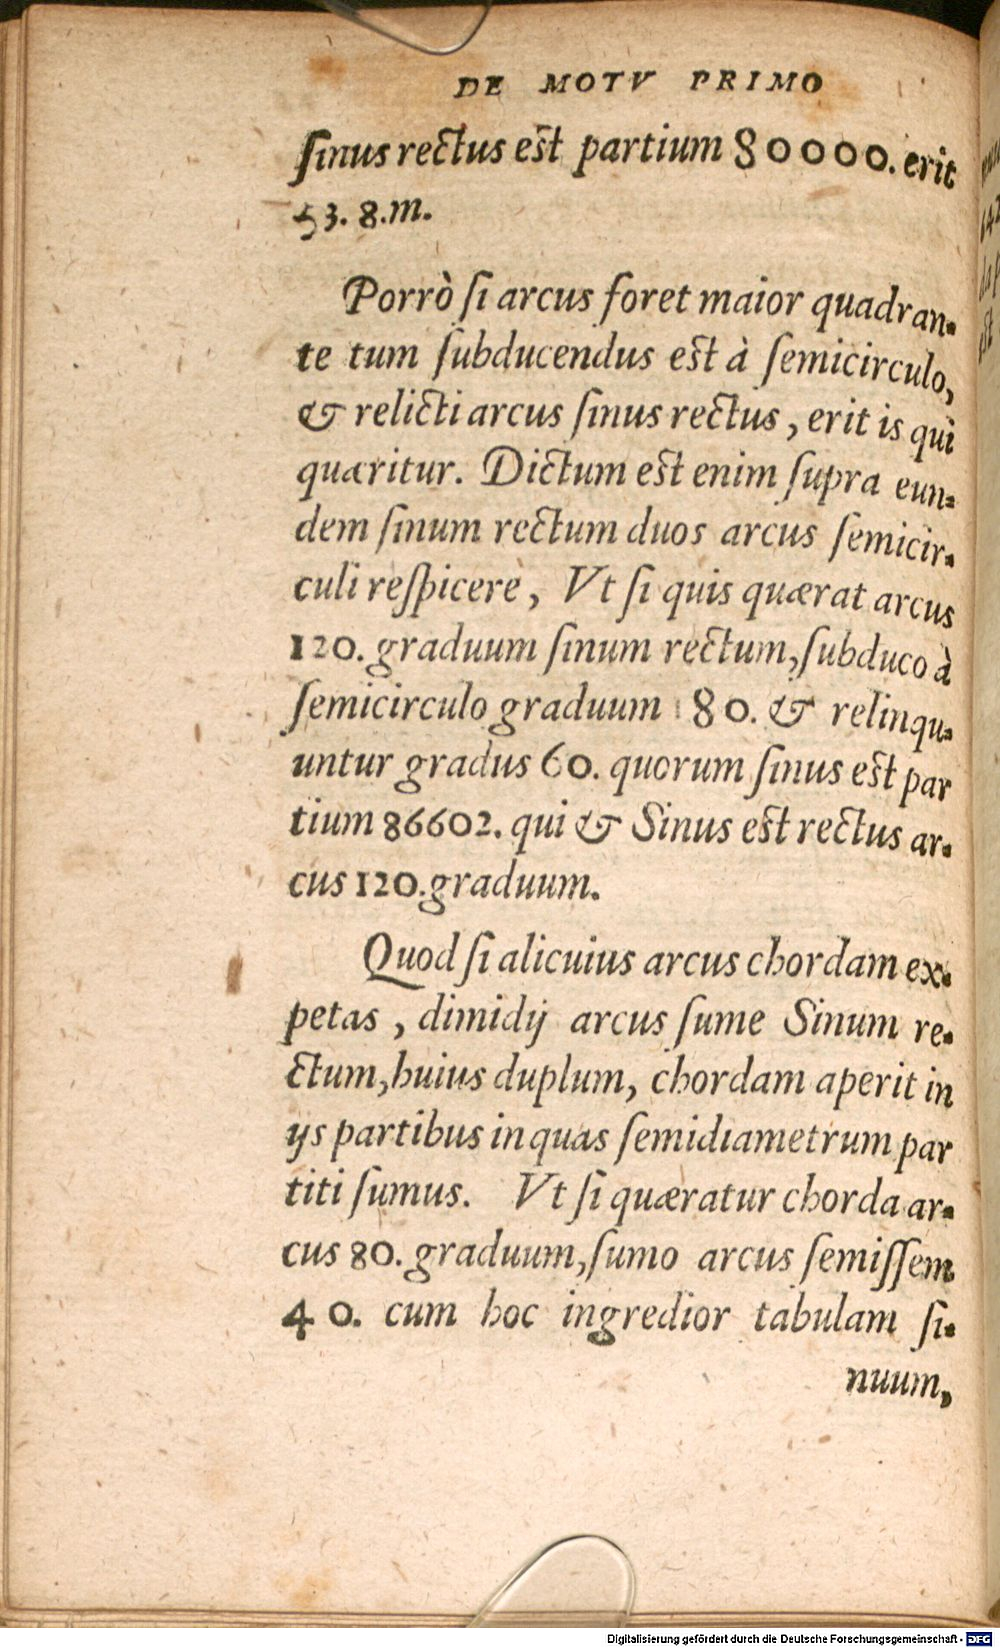 DE MOTV PRIMO
ſinus rectus est partium 80000. erit
53. 8. m.
Porrò ſi arcus foret maior quadran-
te tum ſubducendus est à ſemicirculo,
& relicti arcus ſinus rectus, erit is qui
quæritur. Dictum est enim ſupra eun-
dem ſinum rectum duos arcus ſemicir-
culi reſpicere, Vt ſi quis quærat arcus
120. graduum ſinum rectum, ſubduco à
ſemicirculo graduum 80. & relinqu-
untur gradus 60. quorum ſinus est par
tium 86602. qui & Sinus est rectus ar-
cus 120. graduum.
Quod ſi alicuius arcus chordam ex-
petas, dimidij arcus ſume Sinum re-
ctum, huius duplum, chordam aperit in
ijs partibus in quas ſemidiametrum par
titi ſumus. Vt ſi quæratur chorda ar-
cus 80. graduum, ſumo arcus ſemiſſem
40. cum hoc ingredior tabulam ſi-
nuum,
Digitalisierung gefördert durch die Deutsche Forschungsgemeinschaft - DFG